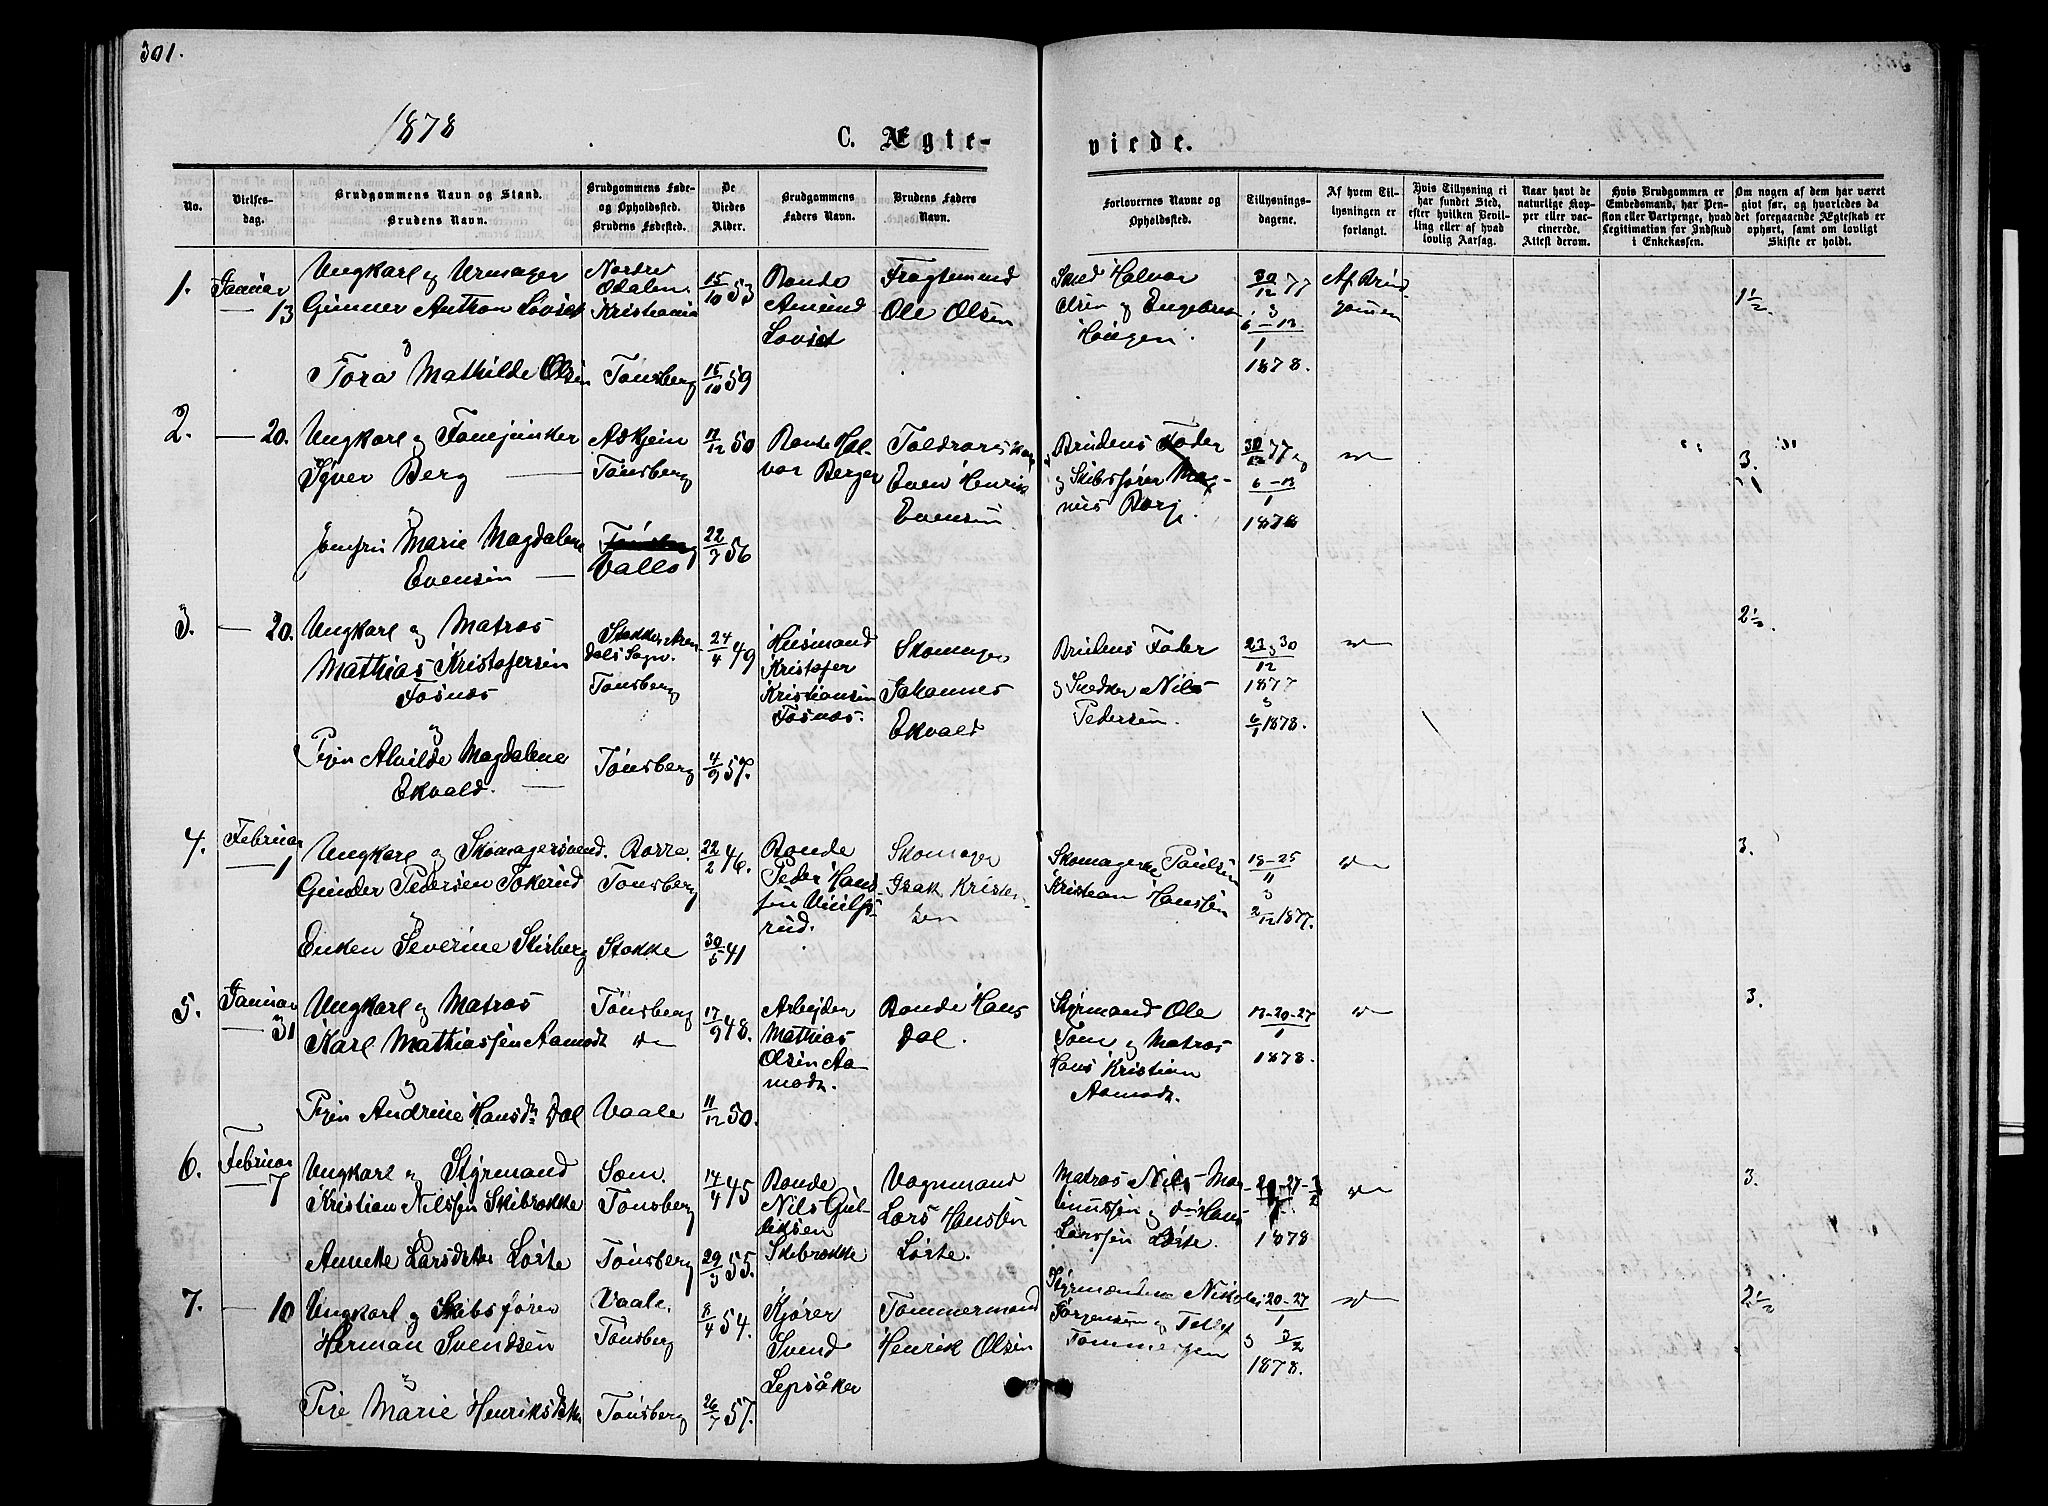 301.
1878
C. Ægte-
viede.
No.
Vielses-
dag.
Brudgommens Navn og Stand.
Brudens Navn.
Brudgommens Føde-
og Opholdsted.
Brudens Fødested.
De
Viedes
Alder.
Brudgommens
Faders Navn.
Brudens Faders
Navn.
Forlovernes Navne og
Opholdsted.
Tillysnings-
dagene.
Af hvem Til-
lysningen er
forlangt.
Hvis Tillysning ei
har fundet Sted,
efter hvilken Bevil-
ling eller af hvad
lovlig Aarsag.
Naar havt de
naturlige Kop-
per eller vac-
cinerede.
Attest derom.
Hvis Brudgommen er
Embedsmand, har Pen-
sion eller Vartpenge, hvad
Legitimation for Indskud
i Enkekassen.
Om nogen af dem har været
givt før, og hvorledes da
det foregaaende Ægteskab er
ophørt, samt om lovligt
Skifte er holdt.
1.
Januar
13
Ungkarl og Urmager
Gunner Anthon Lovset
og
Tora Mathilde Olsen
Nordre
Odalen
Kristiania
Tønsberg
15/10 53
15/10 59
Bonde
Amund
Lovset
Fragtemand
Ole Olsen
Halvor
Olsen og Engebret
Haugen.
30/12 77
og
6-13/1
1878.
Af Brud-
gommen
1½
2.
— 20.
Ungkarl og Fanejunker
Syver Berg —
og
Jomfru Marie Magdalene
Evensen —
Askjem
Tønsberg
Vallø
17/12 50
22/7 56
Bonde Hal-
vor Berger
Even Henrik
Evensen.
Brudens Fader
og Skibsfører Mag-
nus Borg.
30/12 77 og
6-13/1
1878
3.
3.
— 20.
Ungkarl og Matros
Mathias Kristofersen
Fosnæs
og
Pigen Alvilde Magdalene
Ekvald. —
dals Sogn.
Tønsberg
Tønsberg
24/4 49
4/9 57.
Husmand
Kristofer
Kristiansen
Fosnæs.
Skomager
Johannes
Ekvald
Brudens Fader
og Snedker Nils
Pedersen.
23 og 30/12
1877
og
6/1 1878.
2½
4.
Februar
— 1
Ungkarl og Skomagersvend.
Gunder Pedersen Tokerud
Enken Severine Skisberg
Borre.
Tønsberg
Stokke
22/2 46.
30/5 41
Bonde
Peder Han-
sen
rud.
Skomager
Isak Kristen-
sen
Skomagerne Paulsen
Kristian Hanssen
18-25/11
og
2/12 1877.
3.
5.
Januar
— 31
Ungkarl og Matros
Karl Mathiassen Aamodt
og
Pigen Andrine Hansdtr Dal
Tønsberg
Vaale
17/9 48.
11/12 50.
Arbejder
Mathias
Olsen Aa-
modt.
Bonde Hans
Dal.
Styrmand Ole
Tom og Matros
Hans Kristian
Aamodt.
13-20-27/1
1878.
3.
6.
Februar
— 7
Ungkarl og Styrmand
Kristian Nilssen Skibrokke
og
Annette Larsdatter Løste
Sem.
Tønsberg
Tønsberg
14/4 45
29/3 55.
Bonde
Nils Gul-
liksen
Skibrokke
Vognmand
Lars Hansen
Løste.
Matros Nils Mar-
tinussen og do Hans
Larssen Løste.
1878
3.
7.
— 10
Ungkarl og Skibsfører
Herman Svendsen
og
Pige Marie Henriksdatter
Vaale.
Tønsberg
Tønsberg
8/4 54.
26/7 57.
Kjører
Svend
Lepsåker
Tømmermand
Henrik Olsen
Styrmændene Nikolai
Jørgensen og
Tommessen
20-27/1
og 3/2
1878.
2½